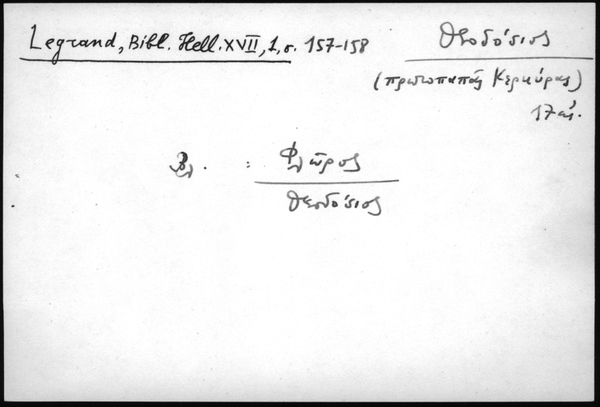 Legrand, Bibl. Hell. XVII, 1, σ. 157-158
Θεοδόσιος
(πρωτοπαπάς Κερκύρας)
17 αι.
Βλ. : Φλώρος
Θεοδόσιος